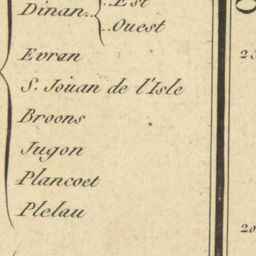 Dinan.. {..Est
..Ouest
Evran
S. Jouan de l'Isle
Broons
Jugon
Plancoet
Plelau